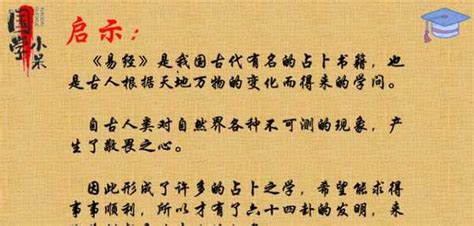 国学
小呆
启示：
《易经》是我国古代有名的占卜书籍，也
是古人根据天地万物的变化而得来的学问。
自古人类对自然界各种不可测的现象，产
生了敬畏之心。
因此形成了许多的占卜之学，希望能求得
事事顺利，所以才有了六十四卦的发明，来